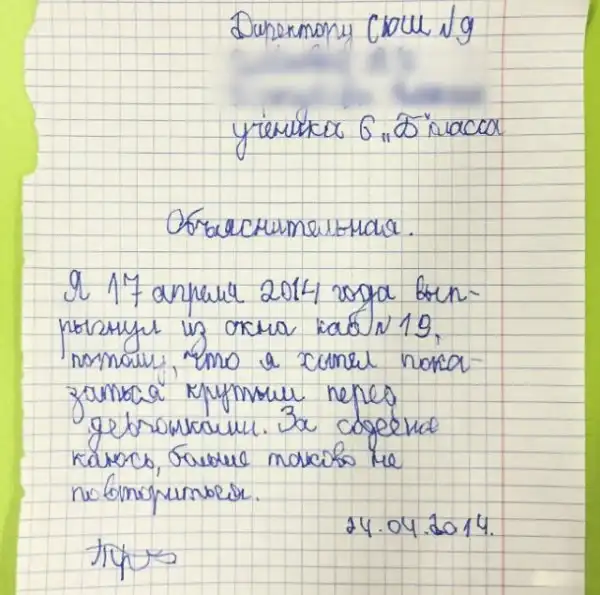 Директору СЮШ №9
ученика 6 "Б" класса
Объяснительная.
Я 17 апреля 2014 года вып-
рыгнул из окна каб №19,
потому, что я хотел пока-
заться крутым перед
девчонками. За содееное
каюсь, больше таково не
повториться.
24.04.2014.